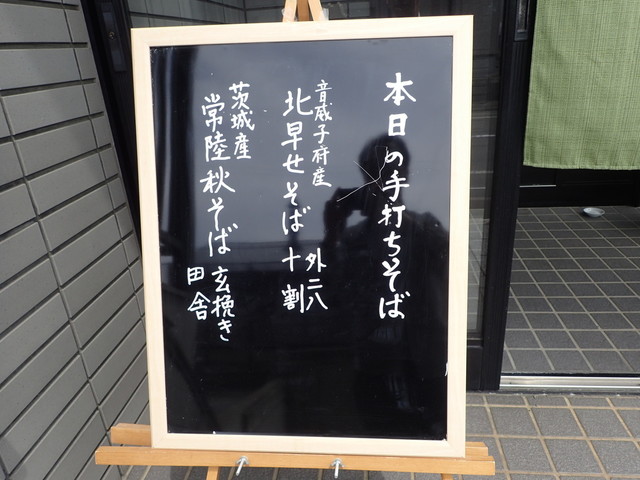 本日の手打ちそば
音威子府産
北早せそば 十割
外二八
茨城産
常陸秋そば 玄挽き
田舎